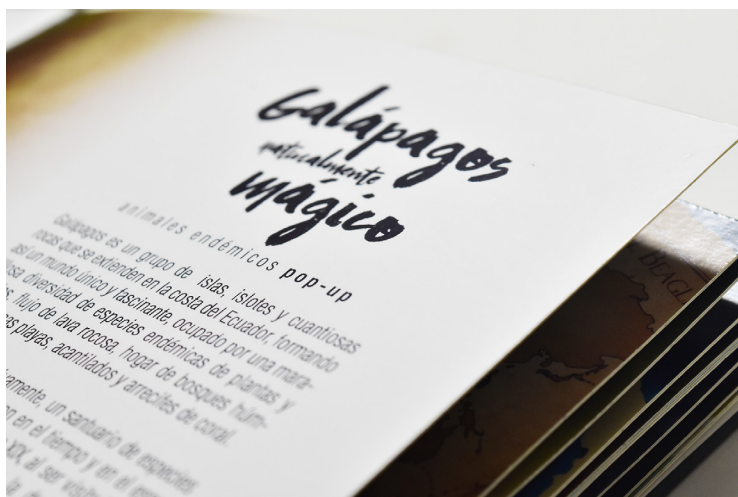 Galápagos
naturalmente
mágico
animales endémicos pop-up
Galápagos es un grupo de islas, islotes y cuantiosas
rocas que se extienden en la costa del Ecuador, formando
así un mundo único y fascinante, ocupado por una mara-
diversidad de especies endémicas de plantas y
flujo de lava rocosa, hogar de bosques húm-
playas, acantilados y arrecifes de coral.
un santuario de especies
en el tiempo y en el
XIX, al ser
BEAGL